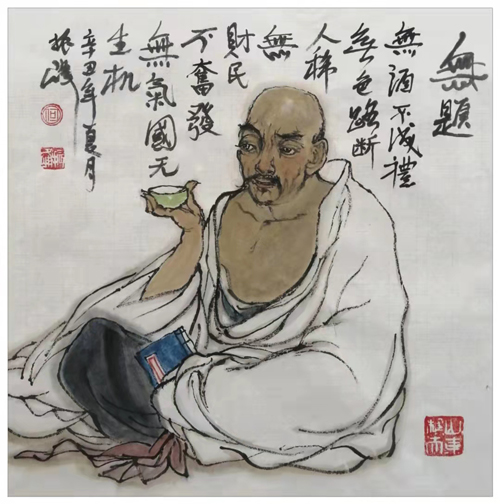 無題
無酒不成禮
無色路斷
人稀
無
財民
不奮發
無氣國无
生机
辛丑年夏月
振
山東